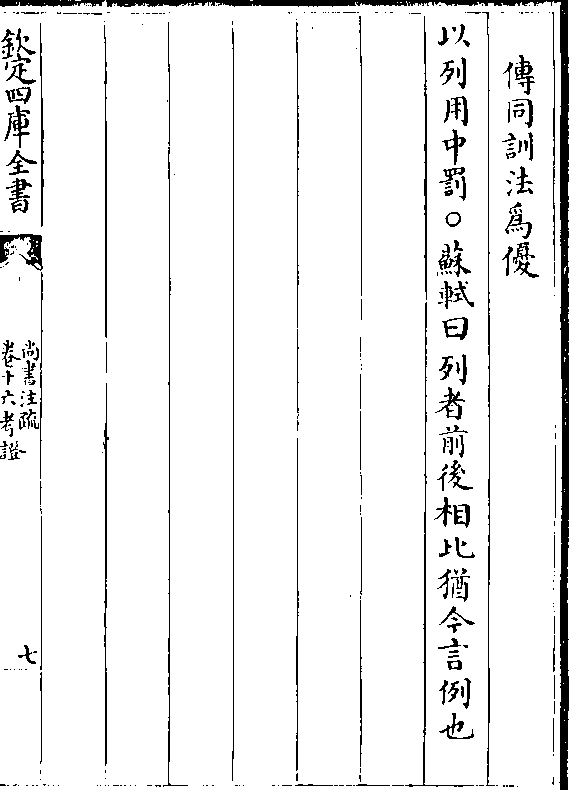 傳同訓法爲優
以列用中罰○蘇軾曰列者前後相比猶今言例也
欽定四庫全書
尚書注疏
卷十六考證
七